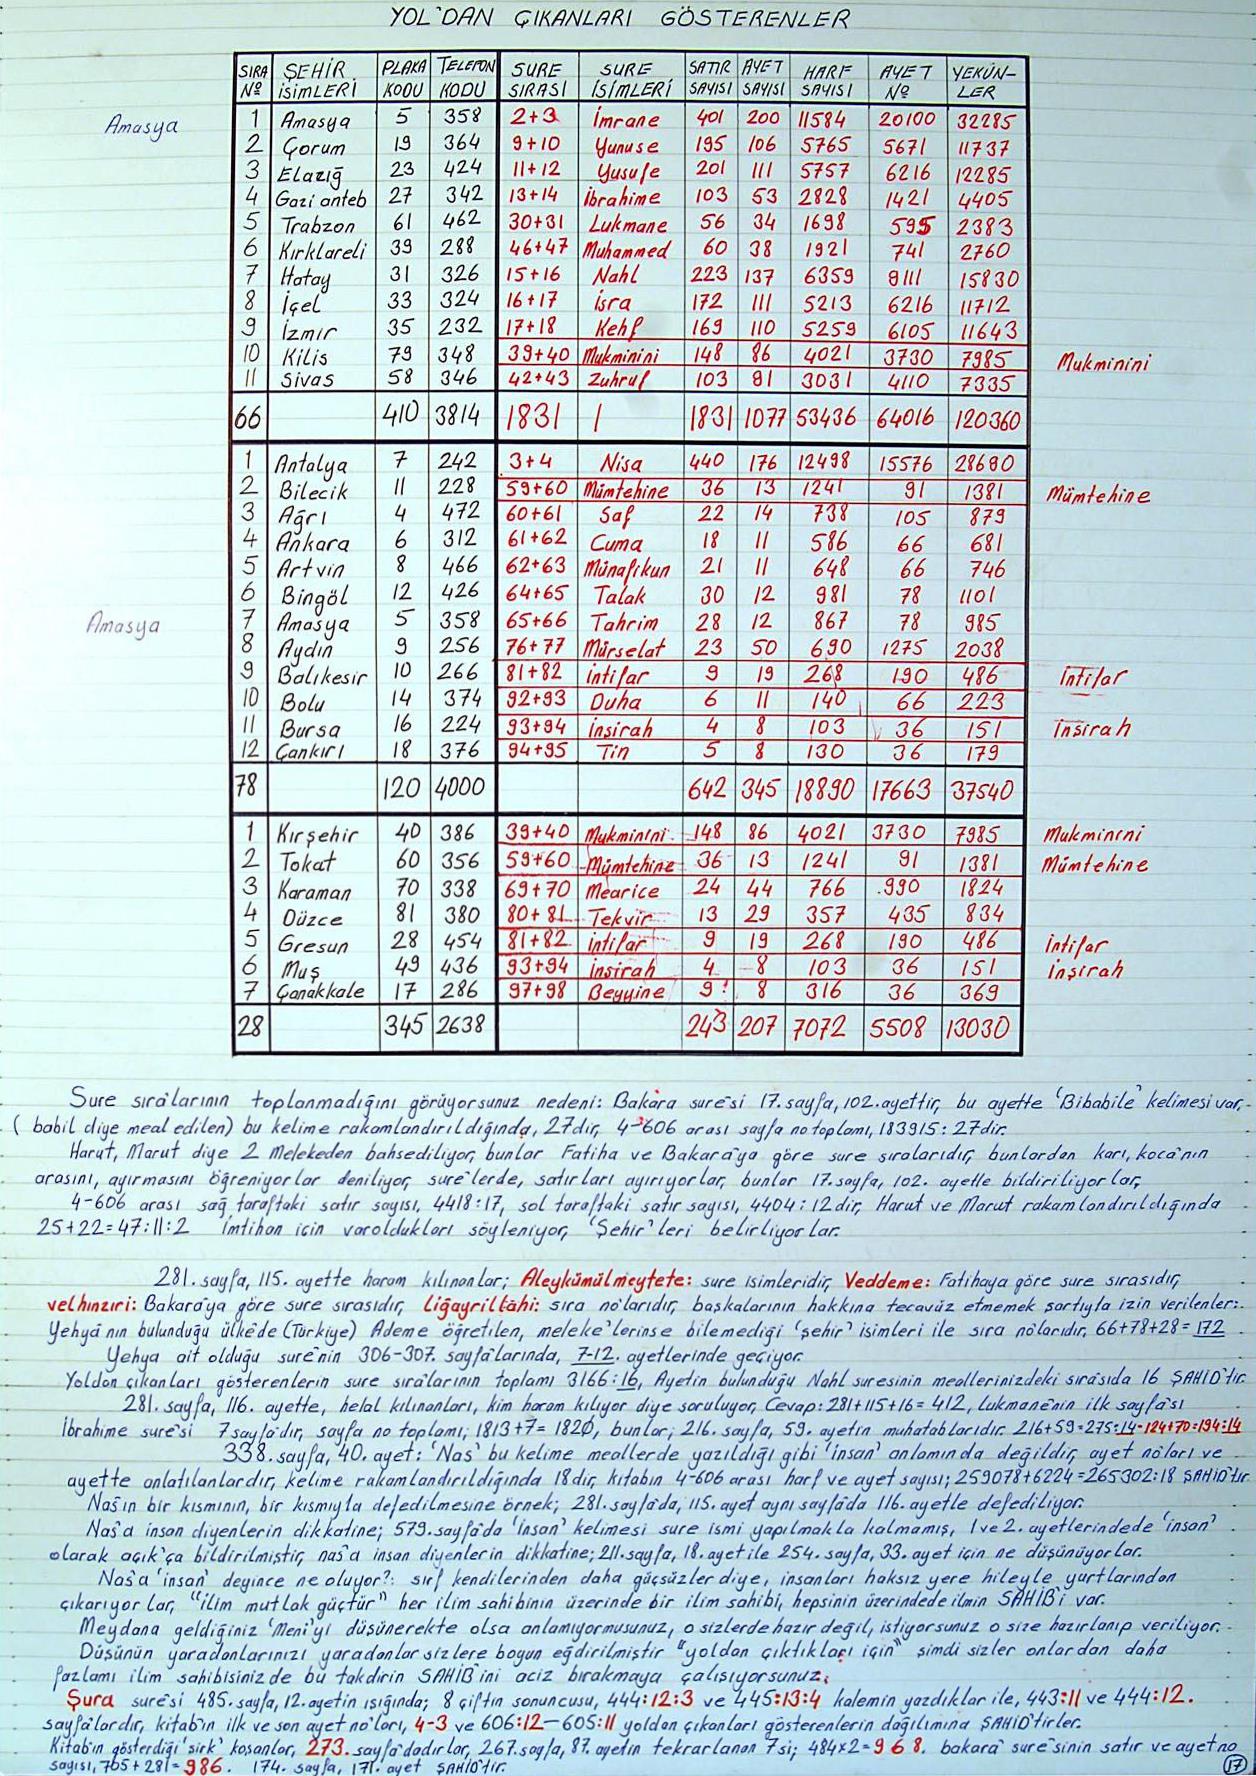 YOL'DAN ÇIKANLARI GÖSTERENLER
SIRA Nº ŞEHİR İSİMLERİ PLAKA KODU TELEFON KODU SURE SIRASI SURE İSİMLERİ SATIR SAYISI AYET SAYISI HARF SAYISI AYET Nº YEKÜN-LER
Amasya
1 Amasya 5 358 2+3 İmrane 401 200 11584 20100 32285
2 Çorum 19 364 9+10 Yunuse 195 106 5765 5671 11737
3 Elazığ 23 424 11+12 Yusufe 201 111 5757 6216 12285
4 Gazi anteb 27 342 13+14 İbrahime 103 53 2828 1421 4405
5 Trabzon 61 462 30+31 Lukmane 56 34 1698 595 2383
6 Kırklareli 39 288 46+47 Muhammed 60 38 1921 741 2760
7 Hatay 31 326 15+16 Nahl 223 137 6359 9111 15830
8 İçel 33 324 16+17 İsra 172 111 5213 6216 11712
9 İzmir 35 232 17+18 Kehf 169 110 5259 6105 11643
10 Kilis 79 348 39+40 Mukminini 148 86 4021 3730 7985 Mukminini
11 Sivas 58 346 42+43 Zuhruf 103 91 3031 4110 7335
66 410 3814 1831 / 1831 1077 53436 64016 120360
1 Antalya 7 242 3+4 Nisa 440 176 12498 15576 28690
2 Bilecik 11 228 59+60 Mümtehine 36 13 1241 91 1381 Mümtehine
3 Ağrı 4 472 60+61 Saf 22 14 738 105 879
4 Ankara 6 312 61+62 Cuma 18 11 586 66 681
5 Artvin 8 466 62+63 Münafikun 21 11 648 66 746
6 Bingöl 12 426 64+65 Talak 30 12 981 78 1101
Amasya
7 Amasya 5 358 65+66 Tahrim 28 12 867 78 985
8 Aydın 9 256 76+77 Mürselat 23 50 690 1275 2038
9 Balıkesir 10 266 81+82 İntifar 9 19 268 190 486 İntifar
10 Bolu 14 374 92+93 Duha 6 11 140 66 223
11 Bursa 16 224 93+94 İnsirah 4 8 103 36 151 İnsirah
12 Çankırı 18 376 94+95 Tin 5 8 130 36 179
78 120 4000 642 345 18890 17663 37540
1 Kırşehir 40 386 39+40 Mukminini 148 86 4021 3730 7985 Mukminini
2 Tokat 60 356 59+60 Mümtehine 36 13 1241 91 1381 Mümtehine
3 Karaman 70 338 69+70 Mearice 24 44 766 990 1824
4 Düzce 81 380 80+81 Tekvir 13 29 357 435 834
5 Gresun 28 454 81+82 İntifar 9 19 268 190 486 İntifar
6 Muş 49 436 93+94 İnsirah 4 8 103 36 151 İnşirah
7 Çanakkale 17 286 97+98 Beyyine 9 8 316 36 369
28 345 2638 243 207 7072 5508 13030
Sure sıra'larının toplanmadığını görüyorsunuz nedeni: Bakara sure'si 17. sayfa, 102. ayettir, bu ayette 'Bibabile' kelimesi var,
(babil diye meal edilen) bu kelime rakamlandırıldığında, 27dir, 4-606 arası sayfa no toplamı, 183915:27dir.
Harut, Marut diye 2 Melekeden bahsediliyor, bunlar Fatiha ve Bakara'ya göre sure sıralarıdır, bunlardan karı, koca'nın
arasını, ayırmasını öğreniyorlar deniliyor, sure'lerde, satırları ayırıyorlar, bunlar 17. sayfa, 102. ayette bildiriliyorlar,
4-606 arası sağ taraftaki satır sayısı, 4418:17, sol taraftaki satır sayısı, 4404:12dir, Harut ve Marut rakamlandırıldığında
25+22=47:11:2 İmtihan için varoldukları söyleniyor, 'Şehir'leri belirliyorlar.
281. sayfa, 115. ayette haram kılınanlar; Aleykümülmeytete: sure isimleridir, Veddeme: Fatihaya göre sure sırasıdır,
velhınziri: Bakara'ya göre sure sırasıdır, Liğayrillâhi: sıra no'larıdır, başkalarının hakkına tecavüz etmemek şartıyla izin verilenler:
Yehya'nın bulunduğu ülke'de (Türkiye) Ademe öğretilen, meleke'lerinse bilemediği 'şehir' isimleri ile sıra no'larıdır, 66+78+28=172
Yehya ait olduğu sure'nin 306-307. sayfa'larında, 7-12. ayetlerinde geçiyor.
Yoldan çıkanları gösterenlerin sure sıra'larının toplamı 3166:16, Ayetin bulunduğu Nahl suresinin meallerinizdeki sıra'sıda 16 ŞAHİD'tir.
281. sayfa, 116. ayette, helal kılınanları, kim haram kılıyor diye soruluyor, Cevap: 281+115+16=412, Lukmane'nin ilk sayfa'sı
İbrahime sure'si 7 sayfa'dır, sayfa no toplamı, 1813+7=1820, bunlar; 216. sayfa, 59. ayetin muhatablarıdır. 216+59=275:14-124+70=194:14
338. sayfa, 40. ayet: 'Nas' bu kelime meallerde yazıldığı gibi 'insan' anlamında değildir, ayet no'ları ve
ayette anlatılanlardır, kelime rakamlandırıldığında 18dir, kitabın 4-606 arası harf ve ayet sayısı; 259078+6224=265302:18 ŞAHİD'tir.
Nas'ın bir kısmının, bir kısmıyla defedilmesine örnek; 281. sayfa'da, 115. ayet aynı sayfa'da 116. ayetle defediliyor.
Nas'a insan diyenlerin dikkatine; 579. sayfa'da 'İnsan' kelimesi sure ismi yapılmakla kalmamış, 1 ve 2. ayetlerindede 'insan'
olarak açık'ça bildirilmiştir, nas'a insan diyenlerin dikkatine; 211. sayfa, 18. ayet ile 254. sayfa, 33. ayet için ne düşünüyorlar.
Nas'a 'insan' deyince ne oluyor?: sırf kendilerinden daha güçsüzler diye, insanları haksız yere hileyle yurtlarından
çıkarıyorlar, "ilim mutlak güçtür" her ilim sahibinin üzerinde bir ilim sahibi, hepsinin üzerindede ilmin SAHİB'i var.
Meydana geldiğiniz 'Meni'yi düşünerekte olsa anlamıyormusunuz, o sizlerde hazır değil, istiyorsunuz o size hazırlanıp veriliyor.
Düşünün yaradanlarınızı yaradanlar sizlere boyun eğdirilmiştir "yoldan çıktıkları için" şimdi sizler onlardan daha
fazlamı ilim sahibisinizde bu takdirin SAHİB'ini aciz bırakmaya çalışıyorsunuz;
Şura sure'si 485. sayfa, 12. ayetin ışığında; 8 çiftin sonuncusu, 444:12:3 ve 445:13:4 kalemin yazdıkları ile, 443:11 ve 444:12.
sayfa'lardır, kitab'ın ilk ve son ayet no'ları, 4-3 ve 606:12-605:11 yoldan çıkanları gösterenlerin dağılımına ŞAHİD'tirler.
Kitab'ın gösterdiği 'sirk' koşanlar, 273. sayfa'dadırlar, 267. sayfa, 87. ayetin tekrarlanan 7'si; 484x2=968. bakara sure'sinin satır ve ayet no
sayısı, 705+281=986. 174. sayfa, 171. ayet ŞAHİD'tir.
17